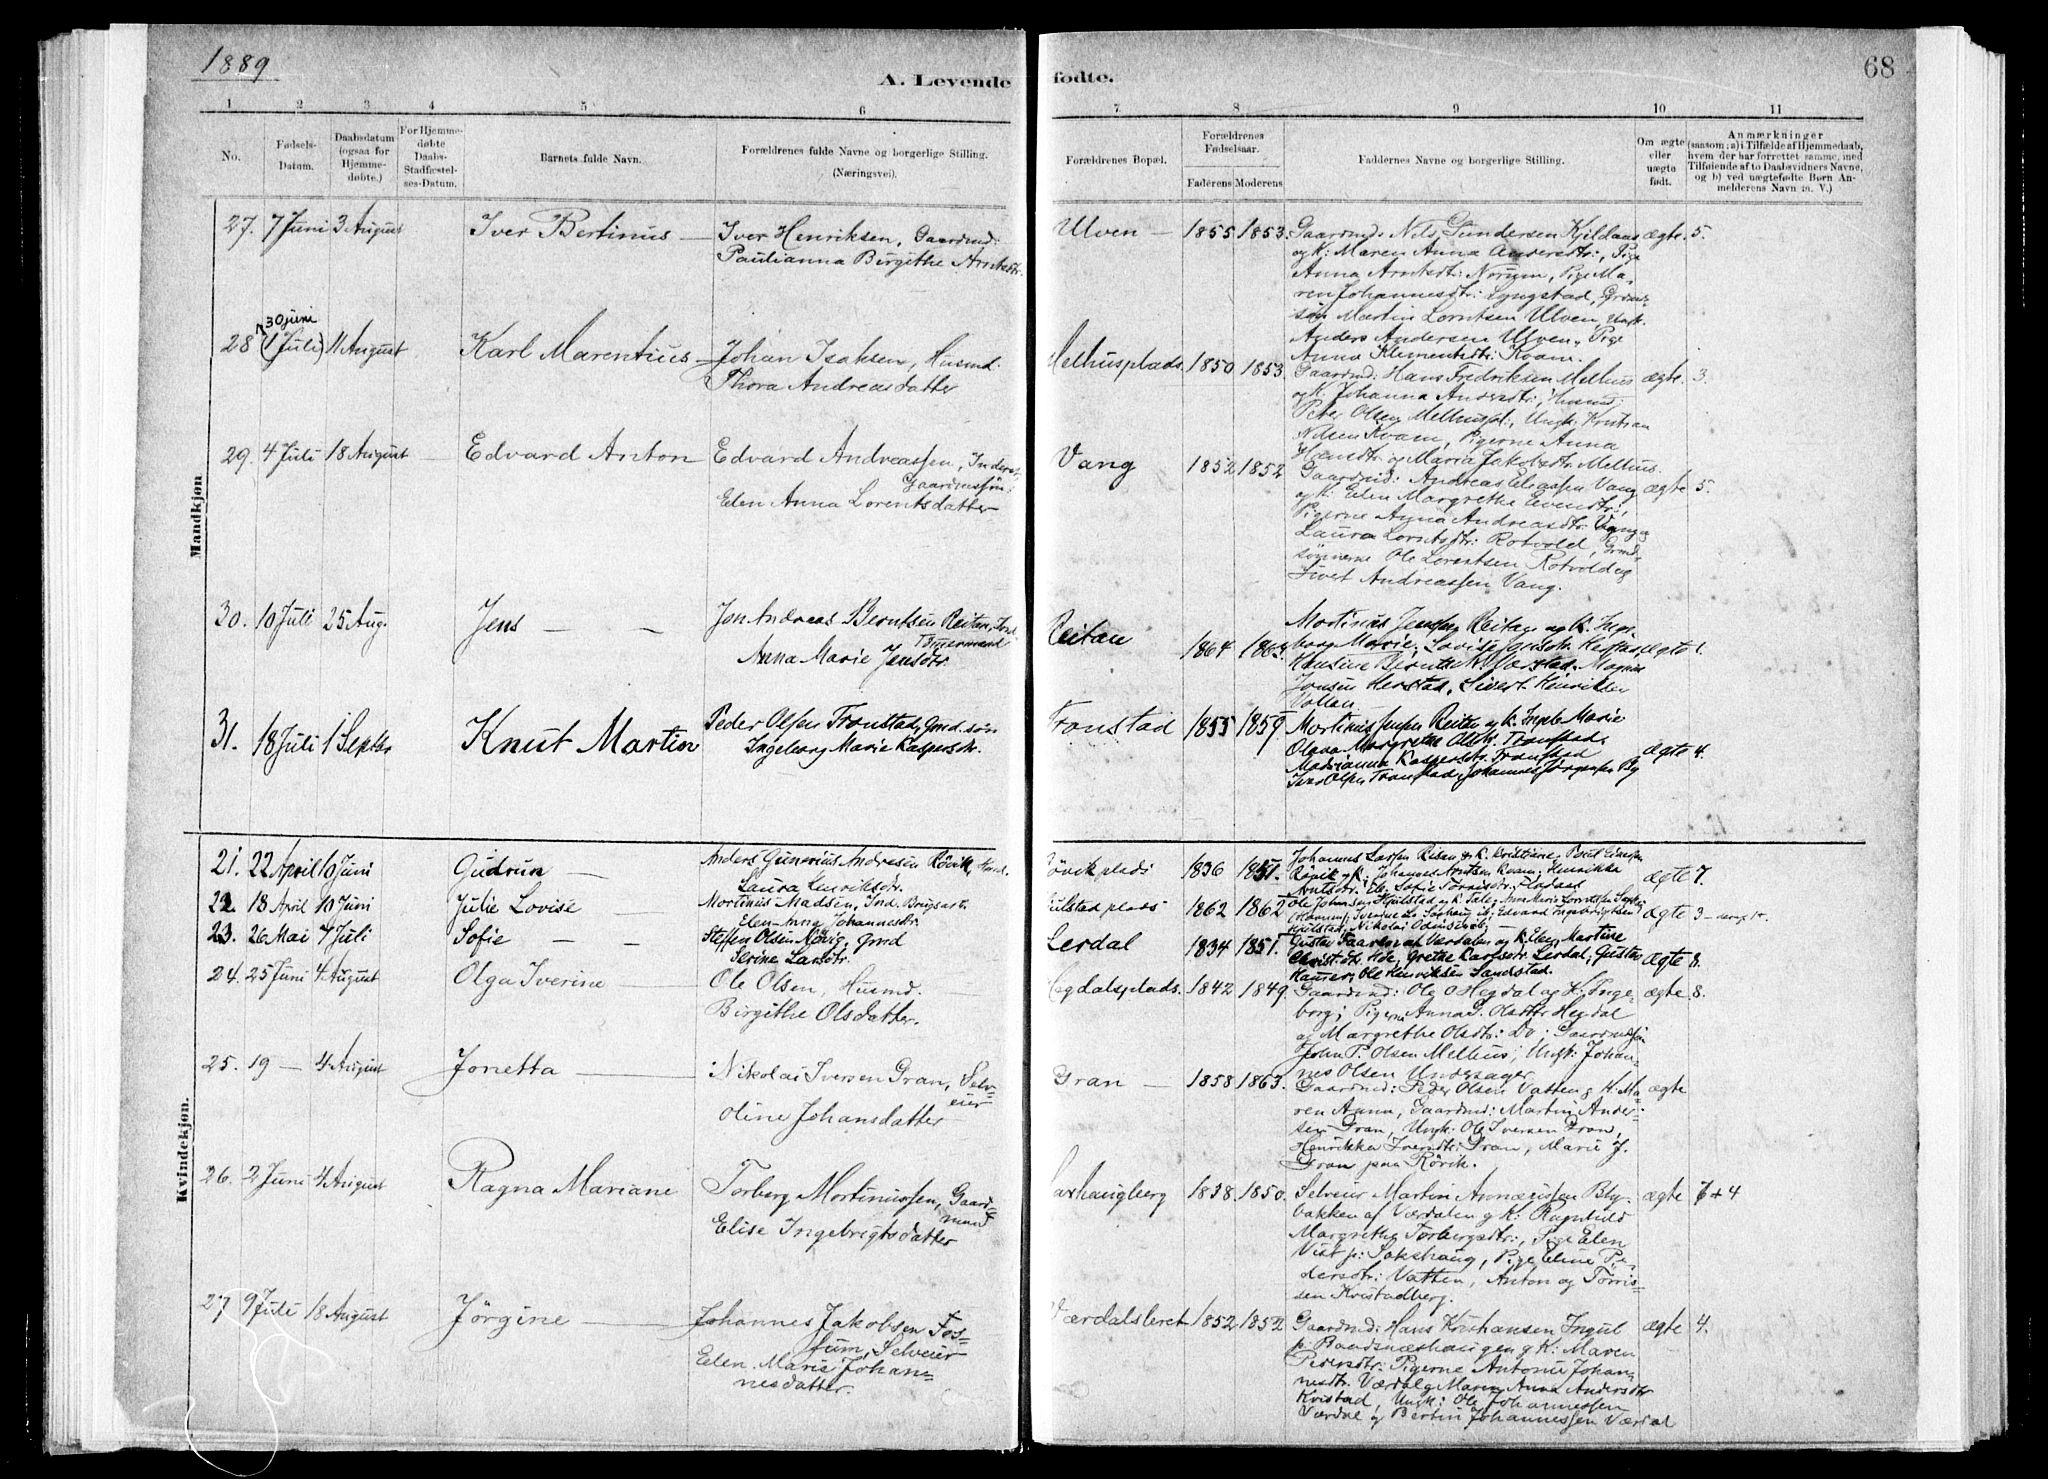 1889
68
A. Levende fødte.
1 2 3 4 5 6 7 8 9 10 11
No.
Fødsels-
Datum.
Daabsdatum
(ogsaa for
Hjemme-
døbte.)
For Hjemme-
døbte
Daabs-
Stadfæstel-
ses-Datum.
Barnets fulde Navn.
Forældrenes fulde Navne og borgerlige Stilling.
(Næringsvei).
Forældrenes Bopæl.
Forældrenes
Fødselsaar.
Faderens Moderens
Faddernes Navne og borgerlige Stilling.
Om ægte
eller
uægte
født.
Anmærkninger
(saasom: a) i Tilfælde af Hjemmedaab,
hvem der har forrettet samme, med
Tilføiende af to Daabsvidners Navne,
og b) ved uægtefødte Børn An-
melderens Navn m. V.)
Mandkjøn
27. 7 Juni 3 August Iver Bertinus — Iver Henriksen, Gaardmd:
Paulianna Birgithe Arntsdtr.
Ulven — 1855 1853. Gaardmd: Nils Gundersen Kjildaas ægte. 5.
og K: Maren Anna Andersdtr:, Pige
Anna Arntsdt: Norum, Pige Ma-
ren Johannesdtr: Lyngstad, Grdmd-
søn Martin Lorntsen Ulven, Ungk.
Anders Andersen Ulven, Pige
Anna Klementsdtr: Kvam.
28 30 juni
(1 Juli) 11 August Karl Marentius — Johan Isaksen, Husmd.
Thora Andreasdatter
Melhusplads. 1850 1853. Gaardmd: Hans Fredriksen Melhus ægte. 3.
og K. Johanna Andersdtr:, Husmd:
Peter Olsen Melhuspl:, Ungk: Kristian
Nilsen Kvam, Pigerne Anna
Hansdtr og Maria Jakobsdtr Melhus.
29. 4 Juli 18 August — Edvard Anton Edvard Andreassen, Inders,
Gaardmssøn:
Elen Anna Lorentsdatter
Vang 1852 1852 Gaardmd: Andreas Eliassen Vang ægte 5.
og K: Elen Margrethe Evensdtr:,
Pigerne Anna Andreasdtr: Vang og
Laura Lorntsdtr: Rotvold, Grmd-
sønnerne Ole Lorentsen Rotvold og
Sivert Andreassen Vang.
30. 10 Juli 25 Aug. Jens — — Jon Andreas Berntsen Reitan, Ind.
Tømermand
Anna Marie Jensdtr.
Reitan 1864 1863. Mortinus Jensen Reitan og K. Inge-
borg Marie; Lovise Jensdtr. Herstad ægte 1.
Hansine Berntsdtr. Herstad. Magnus
Jonsen Herstad, Sivert Henriksen
Vollan —
31. 18 Juli 1 Septbr Knut Martin Peder Olsen Tronstad, Gmd. søn
Ingeborg Marie Kaspersdtr.
Tronstad 1855 1859 Mortinus Jensen Reitan og K. Ingeb. Marie
Olava Margrethe Olsdtr. Tronstad. ægte 4.
Madsianna Kaspersdtr. Tronstad
Iver Olsen Tronstad, Johannes Jørgensen By
Kvindekjøn.
21. 22 April 10 Juni Gudrun — Anders Gunerius Andresen Rövik, Husmd.
Laura Henriksdtr.
Rövikplads 1836 1851. Johannes Larsen Reisan og K. Kristiane, Paul Einersen
Rövik og K., Johannes Arntsen Kvam; Henrikka ægte 7.
Arntsdtr. Elb. Sofie Tørrisdtr. Pladaas
22. 18 April 10 Juni Julie Lovise — Mortinus Madsen, Ind. Brugsarb.
Elen Anna Johannesdtr.
Hulstadplads 1862 1862 Ole Johnsen Hjulstad og K. ægte 3
Hjulstad, Nikolai
23. 26 Mai 7 Juli Sofie — — Steffen Olsen Növig, Gmd
Serine Larsdtr.
Lerdal 1834 1851. Gustav Faaren af Værdalen og K. Elen Martine
Christ.dtr. Hoe, Grethe Karlsdtr. Lerdal, Gustav ægte 8.
Haurer, Ole Henriksen Sandstad.
24. 25 Juni 4 August Olga Iverine — Ole Olsen, Husmd.
Birgithe Olsdatter.
Hegdalsplads. 1842 1849. Gaardmd: Ole O Hegdal og K: Inge- ægte. 8.
borg; Pigerne Anna G. Olsdtr Hegdal
og Margrethe Olsdtr: Do; Gaardmdssøn
John P. Olsen Melhus; Ungk: Johan-
nes Olsen Undersager
25. 19 — 4 August Jonetta — Nikolai Iversen Gran, Selv-
eier
Oline Johansdatter
Gran — 1858 1863. Gaardmd: Peder Olsen Vatten og K: Ma- ægte
ren Anna, Gaardmd: Martin Ander-
sen Gran, Ungk: Ole Iversen Gran,
Henrikka Iversdtr: Gran, Marie J.
Gran paa Rövik.
26. 2 Juni 4 August Ragna Mariane Torberg Mortinussen, Gaard-
mand
Elise Ingebrigtsdatter
Saxhaugberg 1838. 1850. Selveier Martin Arnægissen Bly- ægte 7+4
bakken af Værdalen og K: Ragnhild
Margrethe Torbergsdtr:, Pige Elen
Vist p: Sakshaug, Pige Eline Pe-
dersdtr: Vatten, Anton og Törris-
sen Kvistadberg.
27 9 Juli 18 August Jörgine — Johannes Jakobsen Fos-
sum, Selveier
Elen Marie Johan-
nesdatter.
Værdalsleret 1852 1852 Gaardmd: Hans Kristiansen Ingul ægte 4.
p: Baadsnæshaugen og K: Maren
Pedersdtr: Pigerne Antonie Johan-
nesdtr. Værdal og Maren Anna Andersdtr
Kvistad, Ungk: Ole Johannessen
Værdal og Bertin Johannessen Værdal